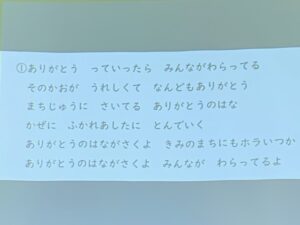 ①ありがとう　っていったら　みんながわらってる
そのかおが　うれしくて　なんどもありがとう
まちじゅうに　さいてる　ありがとうのはな
かぜに　ふかれあしたに　とんでいく
ありがとうのはながさくよ　きみのまちにもホラいつか
ありがとうのはながさくよ　みんなが　わらってるよ